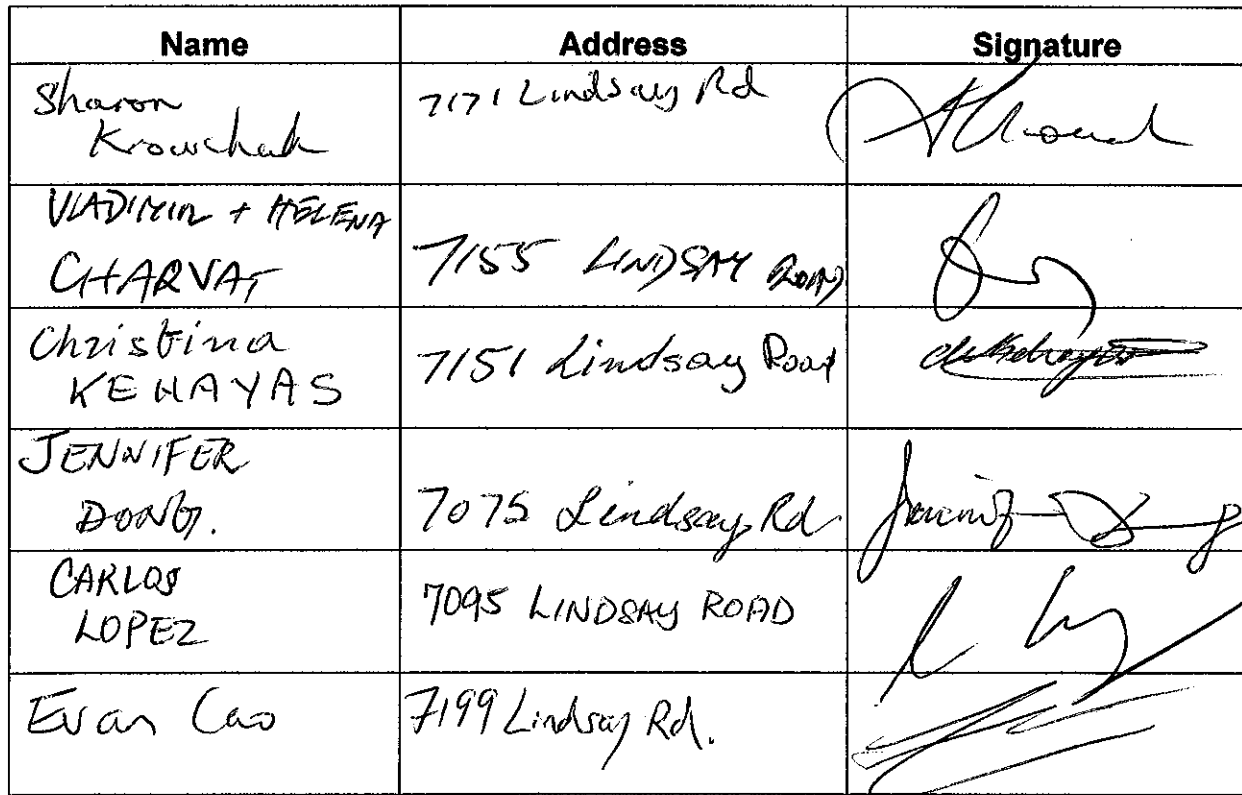 Name Address Signature
Sharon
Krowchuk
7171 Lindsay Rd
VLADIMIR + HELENA
CHARVAT
7155 LINDSAY ROAD
Christina
KEHAYAS
7151 Lindsay Road
JENNIFER
DONG.
7075 Lindsay Rd
CARLOS
LOPEZ
7095 LINDSAY ROAD
Evan Cao
7199 Lindsay Rd.